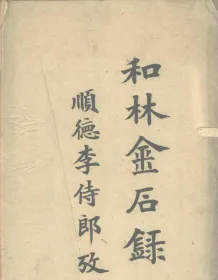 和林金石録
順德李侍郎攷